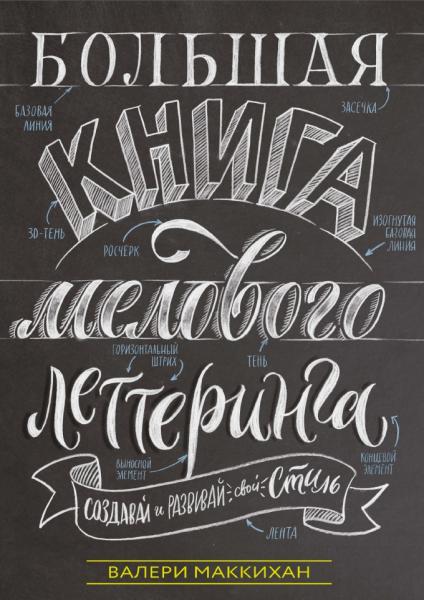 БОЛЬШАЯ
БАЗОВАЯ
ЛИНИЯ
ЗАСЕЧКА
КНИГА
3D-ТЕНЬ
РОСЧЕРК
ИЗОГНУТАЯ
БАЗОВАЯ
ЛИНИЯ
мелового
ГОРИЗОНТАЛЬНЫЙ
ШТРИХ
ТЕНЬ
леттеринга
ВЫНОСНОЙ
ЭЛЕМЕНТ
КОНЦЕВОЙ
ЭЛЕМЕНТ
СОЗДАВАЙ и РАЗВИВАЙ свой Стиль
ЛЕНТА
ВАЛЕРИ МАККИХАН